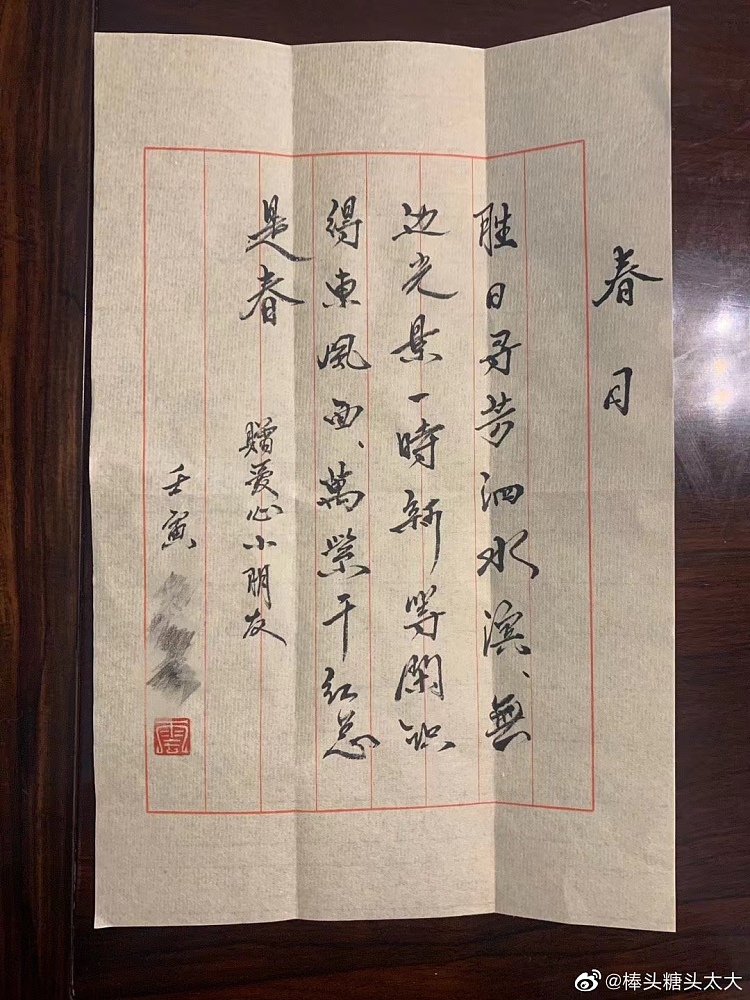 春日
胜日寻芳泗水滨、無
边光景一時新等閑识
得東風面、萬紫千红总
是春
贈爱心小朋友
壬寅
雲
@棒头糖头太大